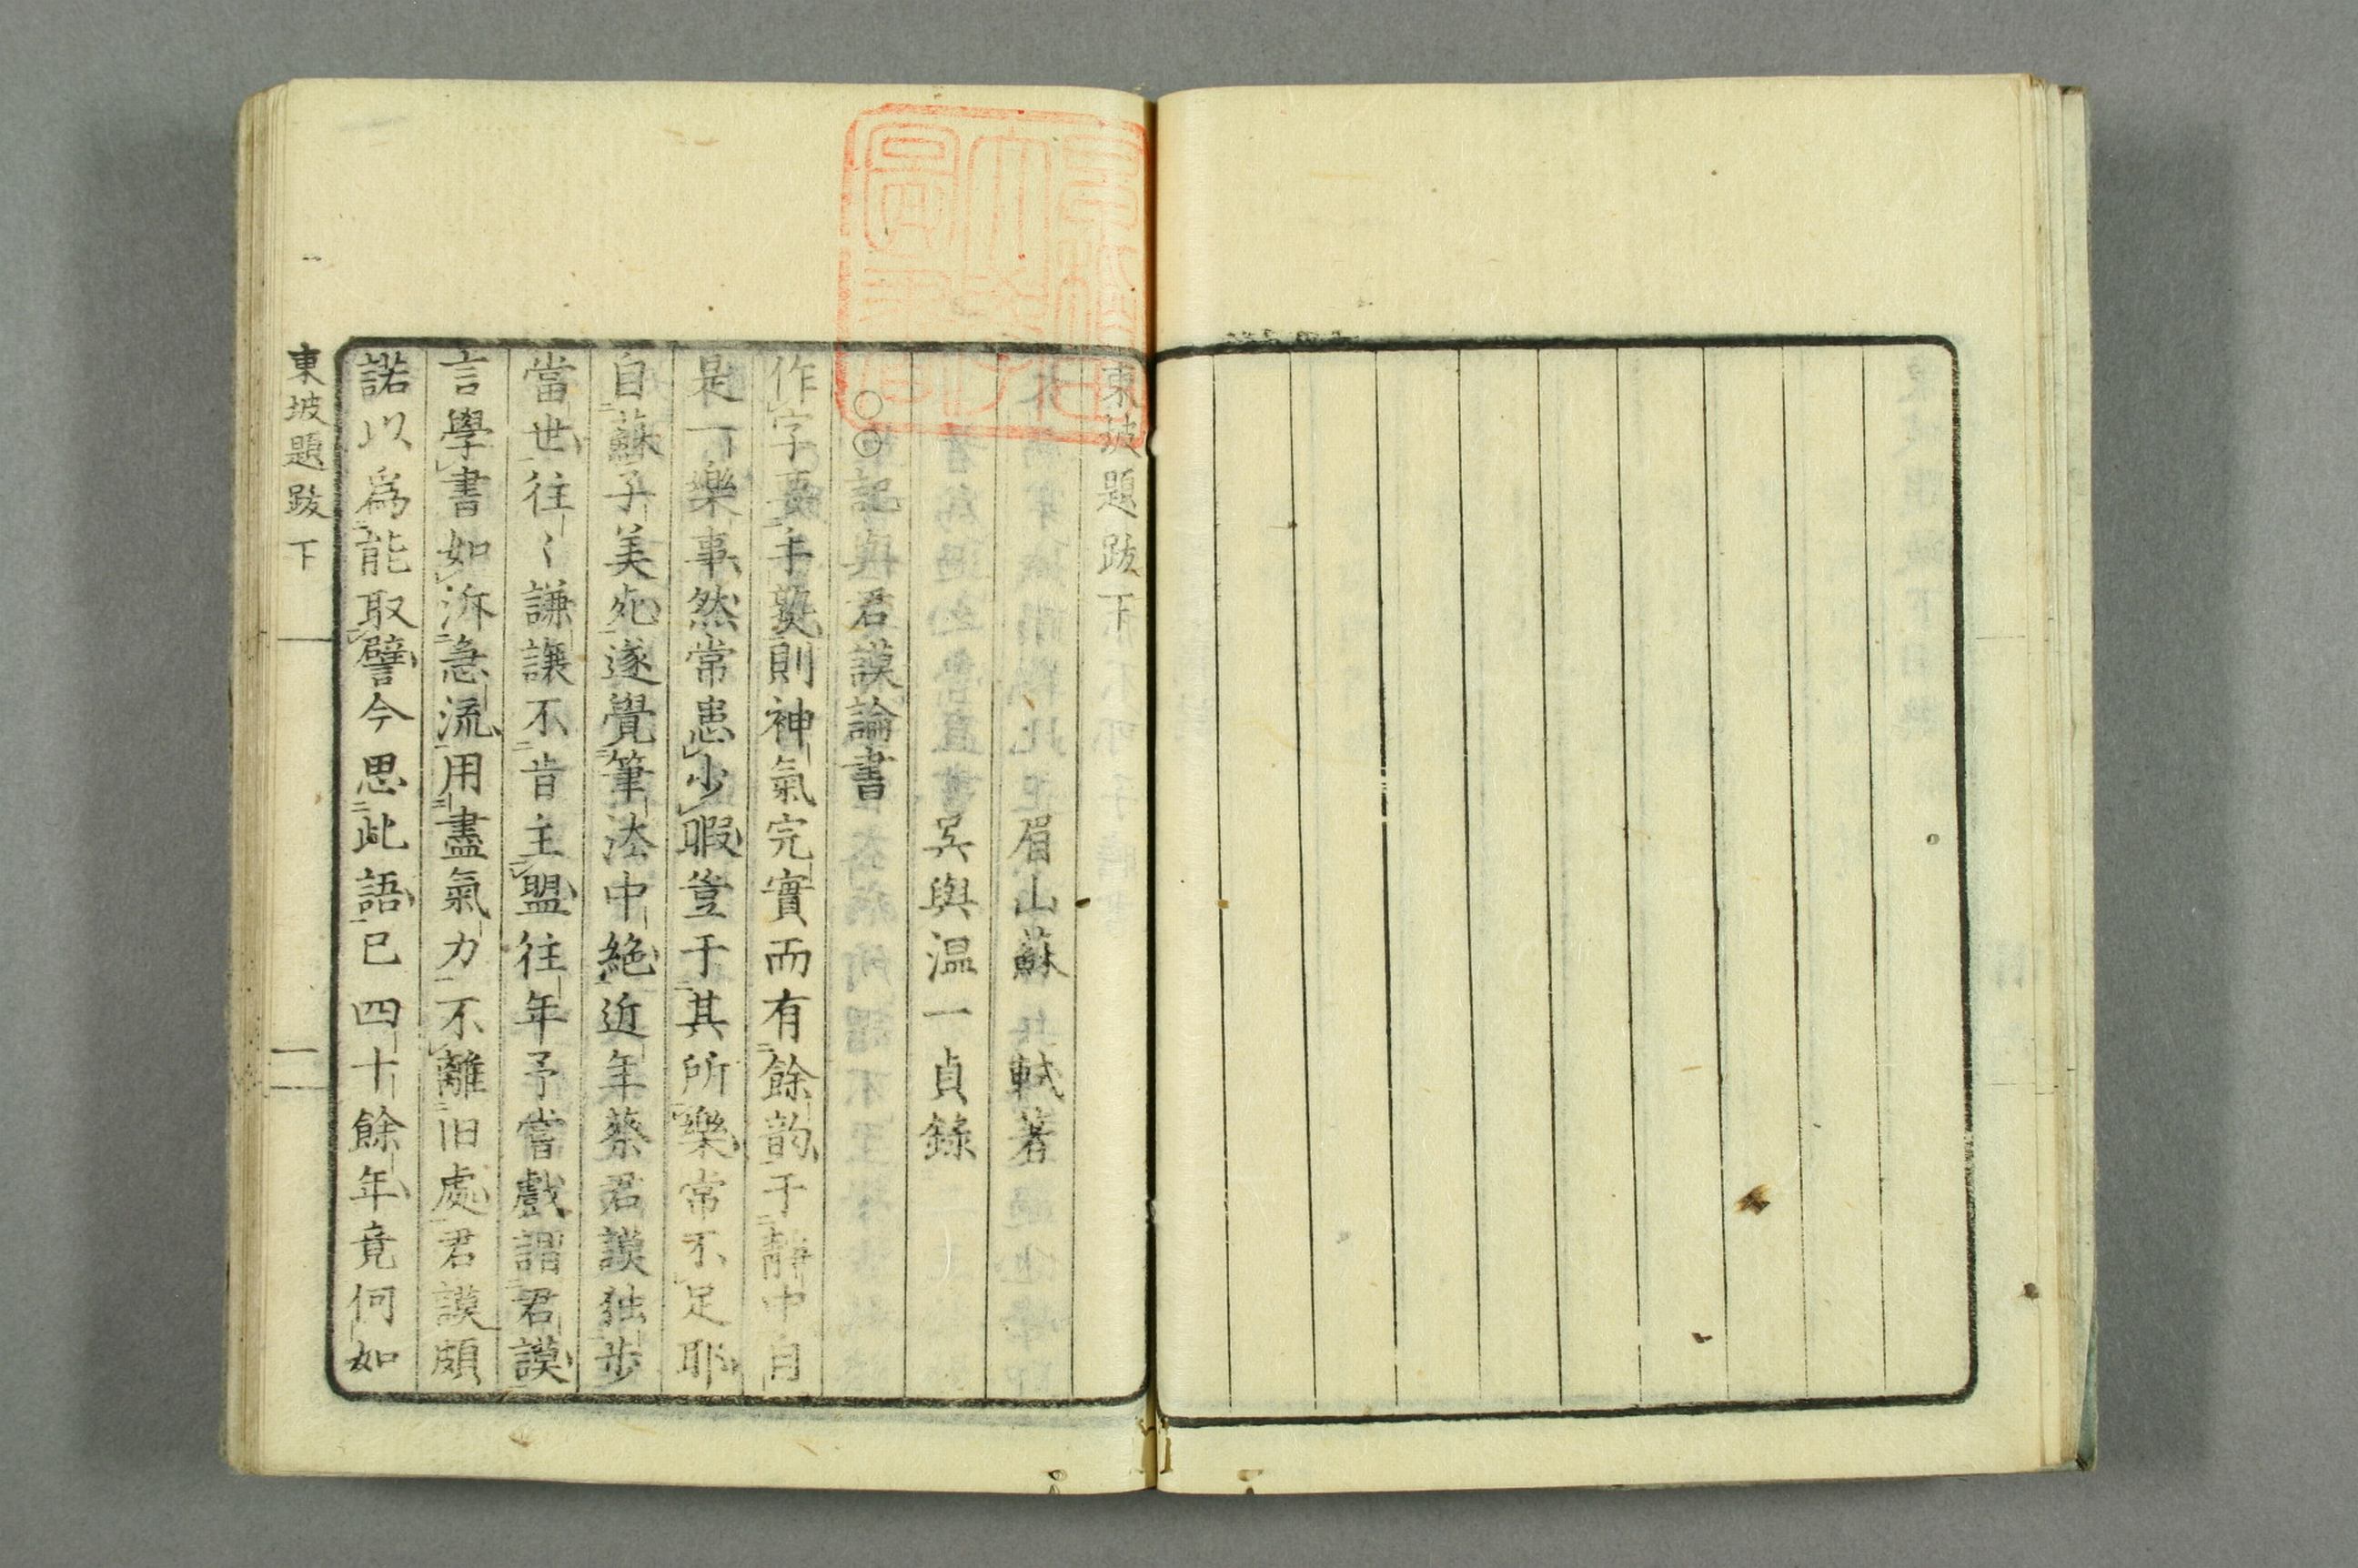 東坡題跋下
眉山蘇軾著
吳興温一貞錄
○○記與君謨論書
作字要手熟則神氣完實而有餘韵于静中自
是一樂事然常患少暇豈于其所樂常不足耶
自蘇子美死遂覺筆法中絶近年蔡君謨独步
當世往〻謙讓不肯主盟往年予嘗戲謂君謨
言學書如泝急流用盡氣力不離旧處君謨頗
諾以爲能取譬今思此語已四十餘年竟何如
東坡題跋下
一